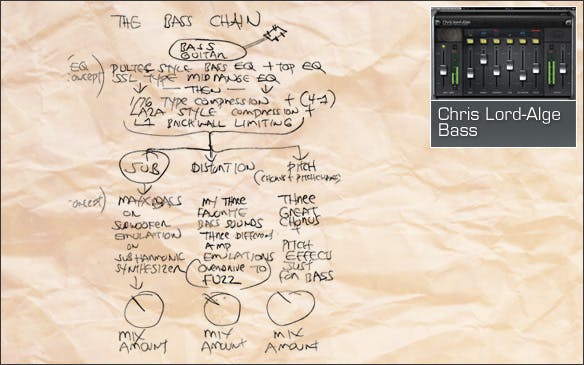 THE BASS CHAIN
BASS
GUITAR
EQ
concept)
PULTEC STYLE BASS EQ + TOP EQ
SSL TYPE MIDRANGE EQ
THEN
1176 TYPE COMPRESSION + (4-1)
LA2A STYLE COMPRESSION +
L1 BRICKWALL LIMITING
SUB
DISTORTION
PITCH
(CHORUS + PITCH
concept)
MAXX BASS
ON
SUBWOOFER
EMULATION
ON
SUBHARMONIC
SYNTHESIZER
MY THREE
FAVORITE
BASS SOUNDS
THREE DIFFERENT
AMP
EMULATIONS
OVERDRIVE TO
FUZZ
THREE
GREAT
CHORUS
+
PITCH
EFFECTS
JUST
FOR BASS
MIX
AMOUNT
MIX
AMOUNT
MIX
AMOUNT
Chris Lord-Alge
Chris Lord-Alge
Bass